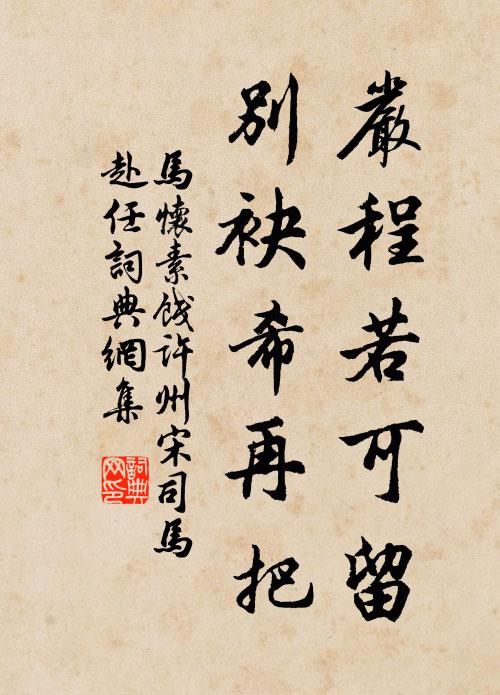 嚴程若可留
別袂希再把
馬懷素餞許州宋司馬
赴任詞典網集
詞典
网印